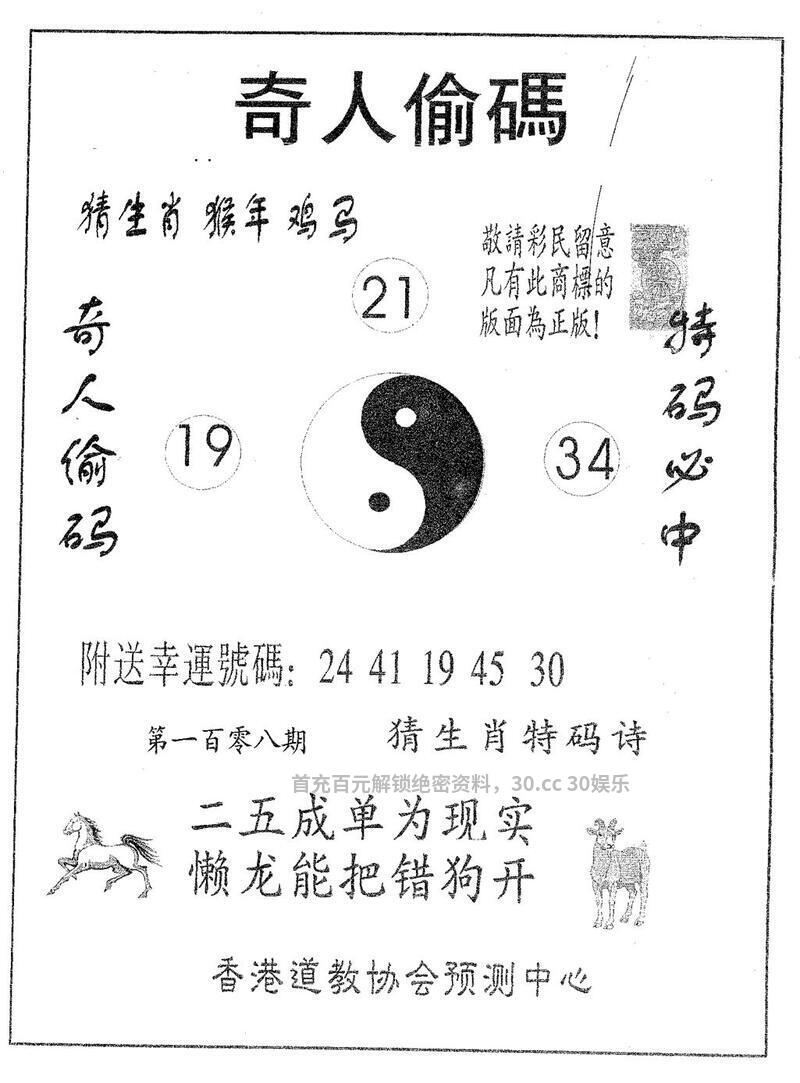 奇人偷碼
猜生肖 猴年鸡马
敬請彩民留意
凡有此商標的
版面為正版!
21
奇人偷码
19
34
特码必中
附送幸運號碼: 24 41 19 45 30
第一百零八期
猜生肖特码诗
首充百元解锁绝密资料，30.cc 30娱乐
二五成单为现实
懒龙能把错狗开
香港道教协会预测中心